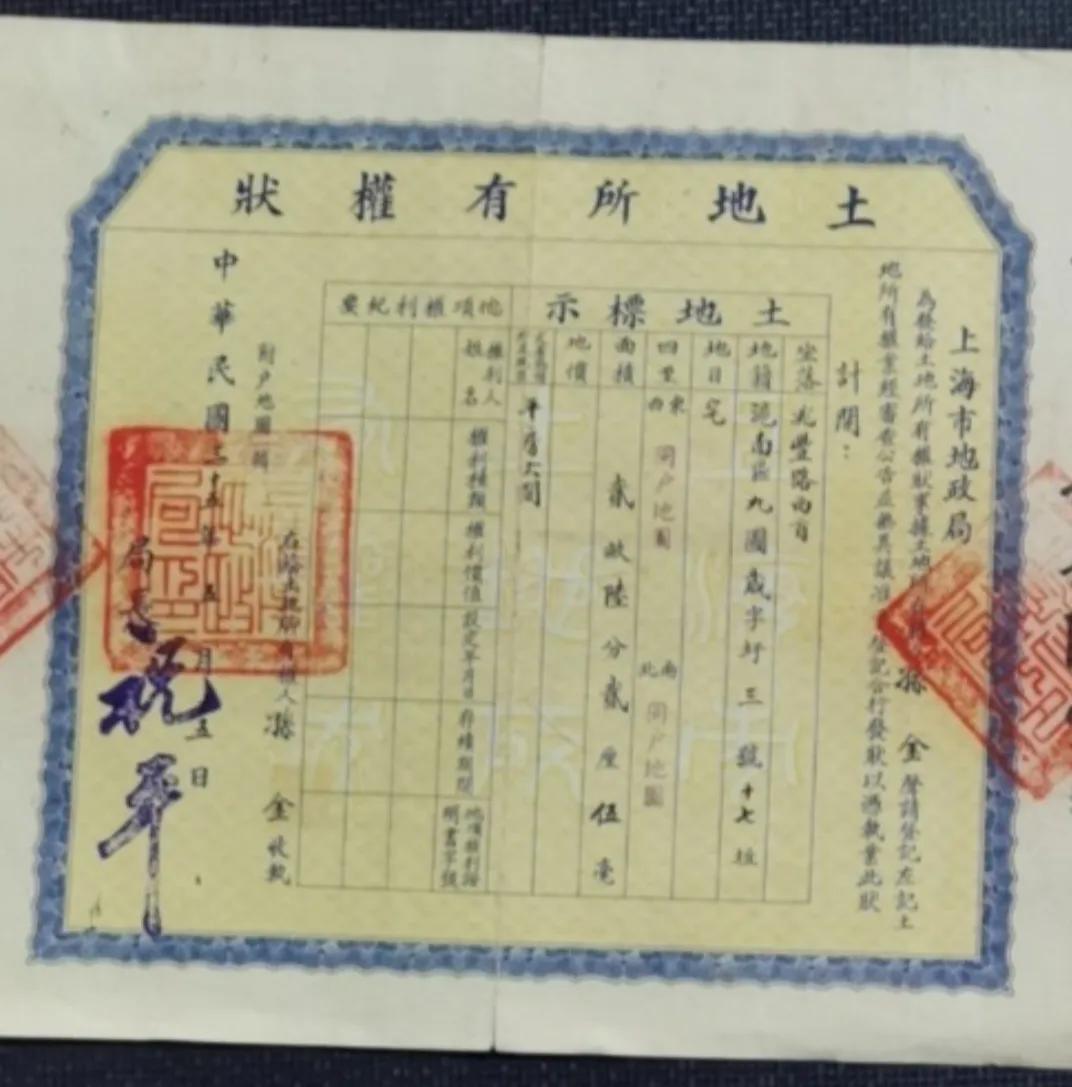 土地所有權狀
上海市地政局
為發給土地所有權狀事據土地所有權人孫金聲請登記左記土
地所有權業經審查公告並無異議准予登記合行發狀以憑執業此狀
計開：
土地標示
坐落 北豐路西首
地籍 滬南區九圖歲字圩三號十七坵
地目 宅
四至 東西 同戶地圖 南北 同戶地圖
面積 貳畝陸分貳厘伍毫
地價
平房六間
他項權利紀要
權利人姓名 權利種類 權利價值 設定年月日 存續期間 他項權利證明書字號
附戶地圖
右給土地所有權人孫金收執
中華民國三十五年五月五日
局長祝平